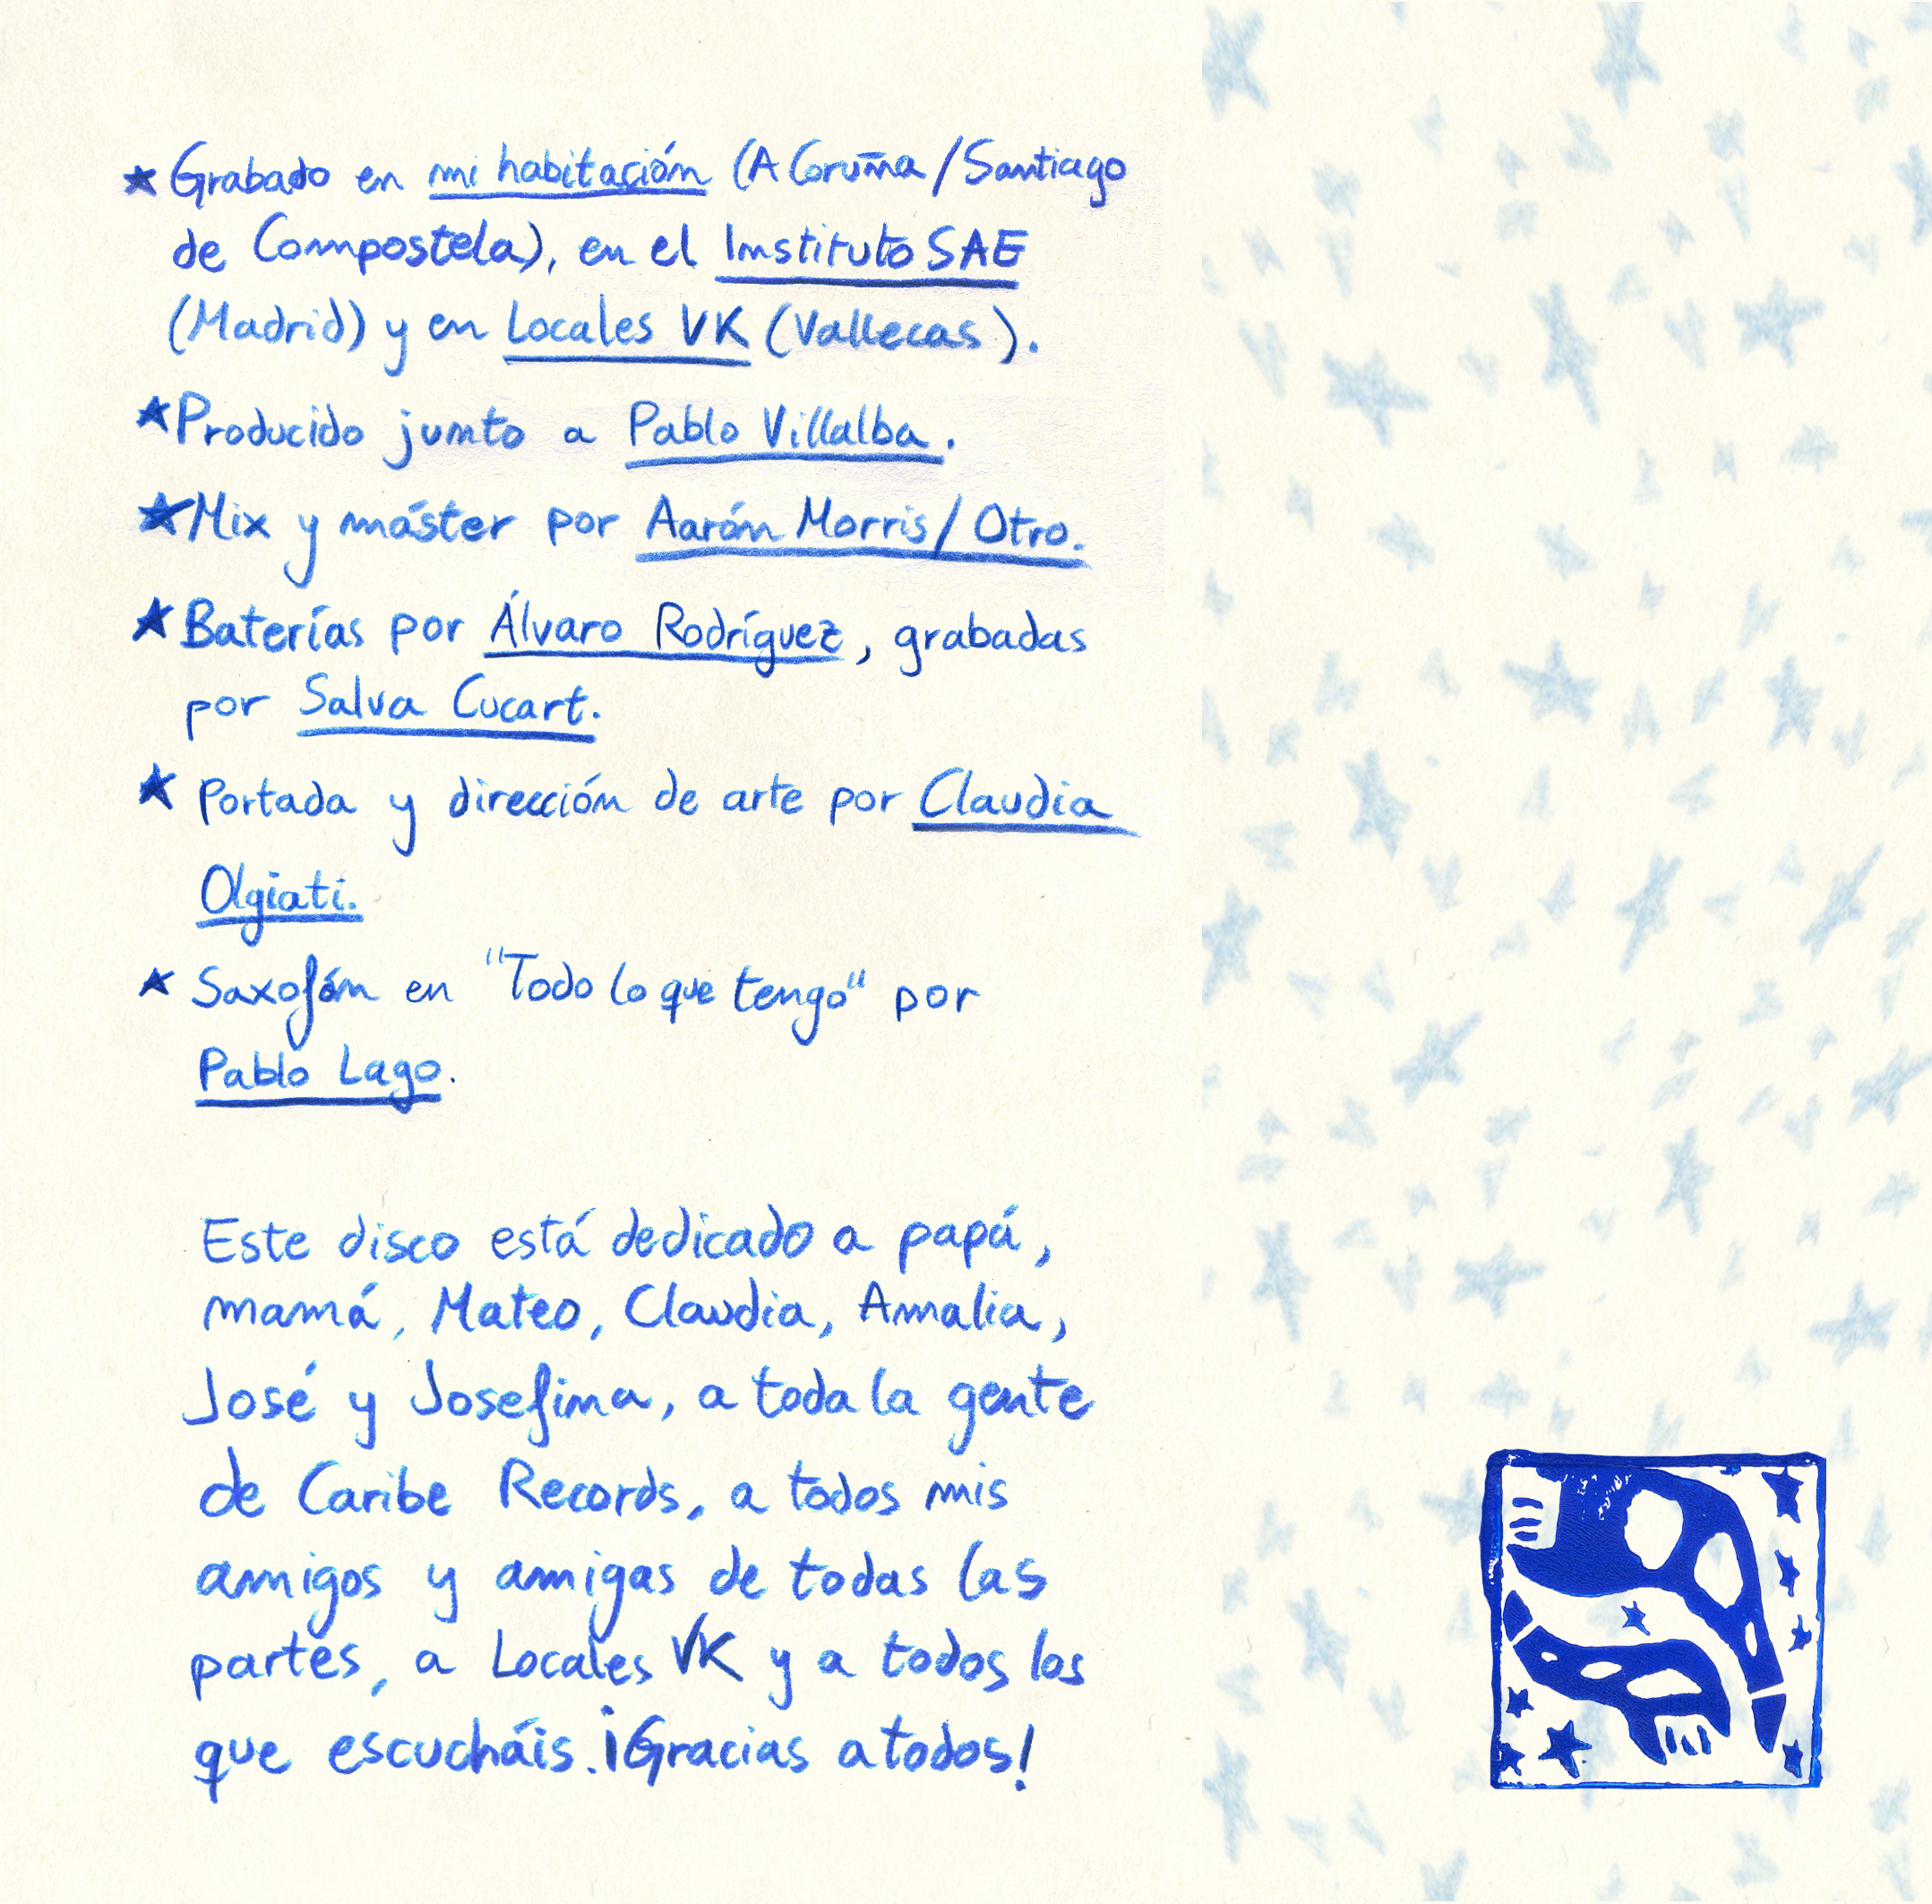 ★ Grabado en mi habitación (A Coruña/Santiago
de Compostela), en el Instituto SAE
(Madrid) y en Locales VK (Vallecas).
★ Producido junto a Pablo Villalba.
★ Mix y máster por Aarón Morris/Otro.
★ Baterías por Álvaro Rodríguez, grabadas
por Salva Cucart.
★ Portada y dirección de arte por Claudia
Olgiati.
★ Saxofón en "Todo lo que tengo" por
Pablo Lago.
Este disco está dedicado a papá,
mamá, Mateo, Claudia, Amalia,
José y Josefina, a toda la gente
de Caribe Records, a todos mis
amigos y amigas de todas las
partes, a Locales VK y a todos los
que escucháis. ¡Gracias a todos!